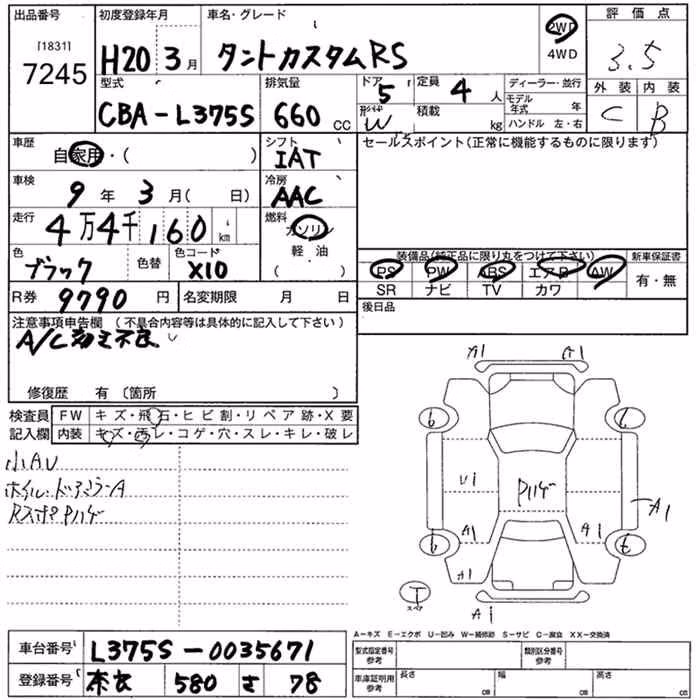 出品番号 [1831] 7245
初度登録年月 H20 3月
車名・グレード タントカスタムRS
2WD
4WD
評価点 3.5
外装 内装
C B
型式 CBA-L375S
排気量 660 CC
ドア 5
形状 W
定員 4 人
積載 kg
ディーラー・並行
モデル年式 年
ハンドル 左・右
車歴 自家用・( )
シフト IAT
セールスポイント(正常に機能するものに限ります)
車検 9年 3月( 日)
冷房 AAC
走行 4万4千160 km
燃料 ガソリン
軽・油
( )
色 ブラック 色替
色コード X10
装備品(純正品に限り丸をつけて下さい) 新車保証書
PS PW ABS エアB AW 有・無
SR ナビ TV カワ
R券 9790 円 名変期限 月 日
後日品
注意事項申告欄 (不具合内容等は具体的に記入して下さい)
A/C効き不良
修復歴 有 〔箇所 〕
検査員 FW キズ・飛石・ヒビ割・リペア跡・X要
記入欄 内装 キズ・汚レ・コゲ・穴・スレ・キレ・破レ
小AU
ホイル・ドアミラーA
RスポPハゲ
A1 A1
U1 Pハゲ
A1 A1 A1
A1
A1
T スペア
A-キズ E-エクボ U-凹み W-補修跡 S-サビ C-腐食 XX-交換済
車台番号 L375S-0035671
登録番号 奈良 580 さ 78
型式指定番号 参考 類別区分番号 参考
車庫証明用 参考 長さ cm 幅 cm 高さ cm